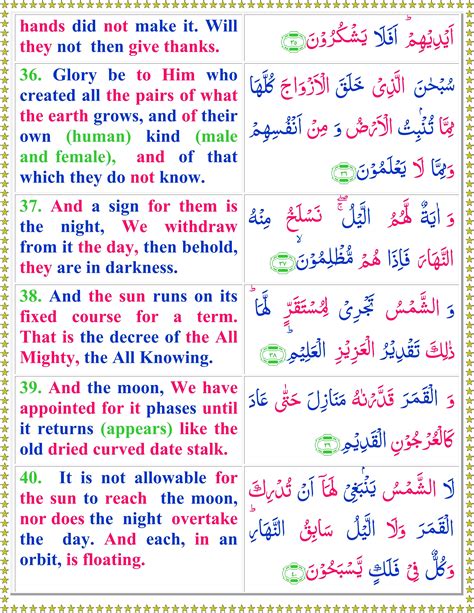 hands did not make it. Will
they not then give thanks.
اَيْدِيْهِمْ ؕ اَفَلَا يَشْكُرُوْنَ ٣٥
36. Glory be to Him who
created all the pairs of what
the earth grows, and of their
own (human) kind (male
and female), and of that
which they do not know.
سُبْحٰنَ الَّذِىْ خَلَقَ الْاَزْوَاجَ كُلَّهَا
مِمَّا تُنْۢبِتُ الْاَرْضُ وَ مِنْ اَنْفُسِهِمْ
وَمِمَّا لَا يَعْلَمُوْنَ ٣٦
37. And a sign for them is
the night, We withdraw
from it the day, then behold,
they are in darkness.
وَ اٰيَةٌ لَّهُمُ الَّيْلُ ۖۚ نَسْلَخُ مِنْهُ
النَّهَارَ فَاِذَا هُمْ مُّظْلِمُوْنَ ۙ ٣٧
38. And the sun runs on its
fixed course for a term.
That is the decree of the All
Mighty, the All Knowing.
وَ الشَّمْسُ تَجْرِىْ لِمُسْتَقَرٍّ لَّهَا ؕ
ذٰلِكَ تَقْدِيْرُ الْعَزِيْزِ الْعَلِيْمِ ؕ ٣٨
39. And the moon, We have
appointed for it phases until
it returns (appears) like the
old dried curved date stalk.
وَ الْقَمَرَ قَدَّرْنٰهُ مَنَازِلَ حَتّٰى عَادَ
كَالْعُرْجُوْنِ الْقَدِيْمِ ٣٩
40. It is not allowable for
the sun to reach the moon,
nor does the night overtake
the day. And each, in an
orbit, is floating.
لَا الشَّمْسُ يَنْۢبَغِىْ لَهَاۤ اَنْ تُدْرِكَ
الْقَمَرَ وَلَا الَّيْلُ سَابِقُ النَّهَارِ ؕ
وَكُلٌّ فِىْ فَلَكٍ يَّسْبَحُوْنَ ٤٠